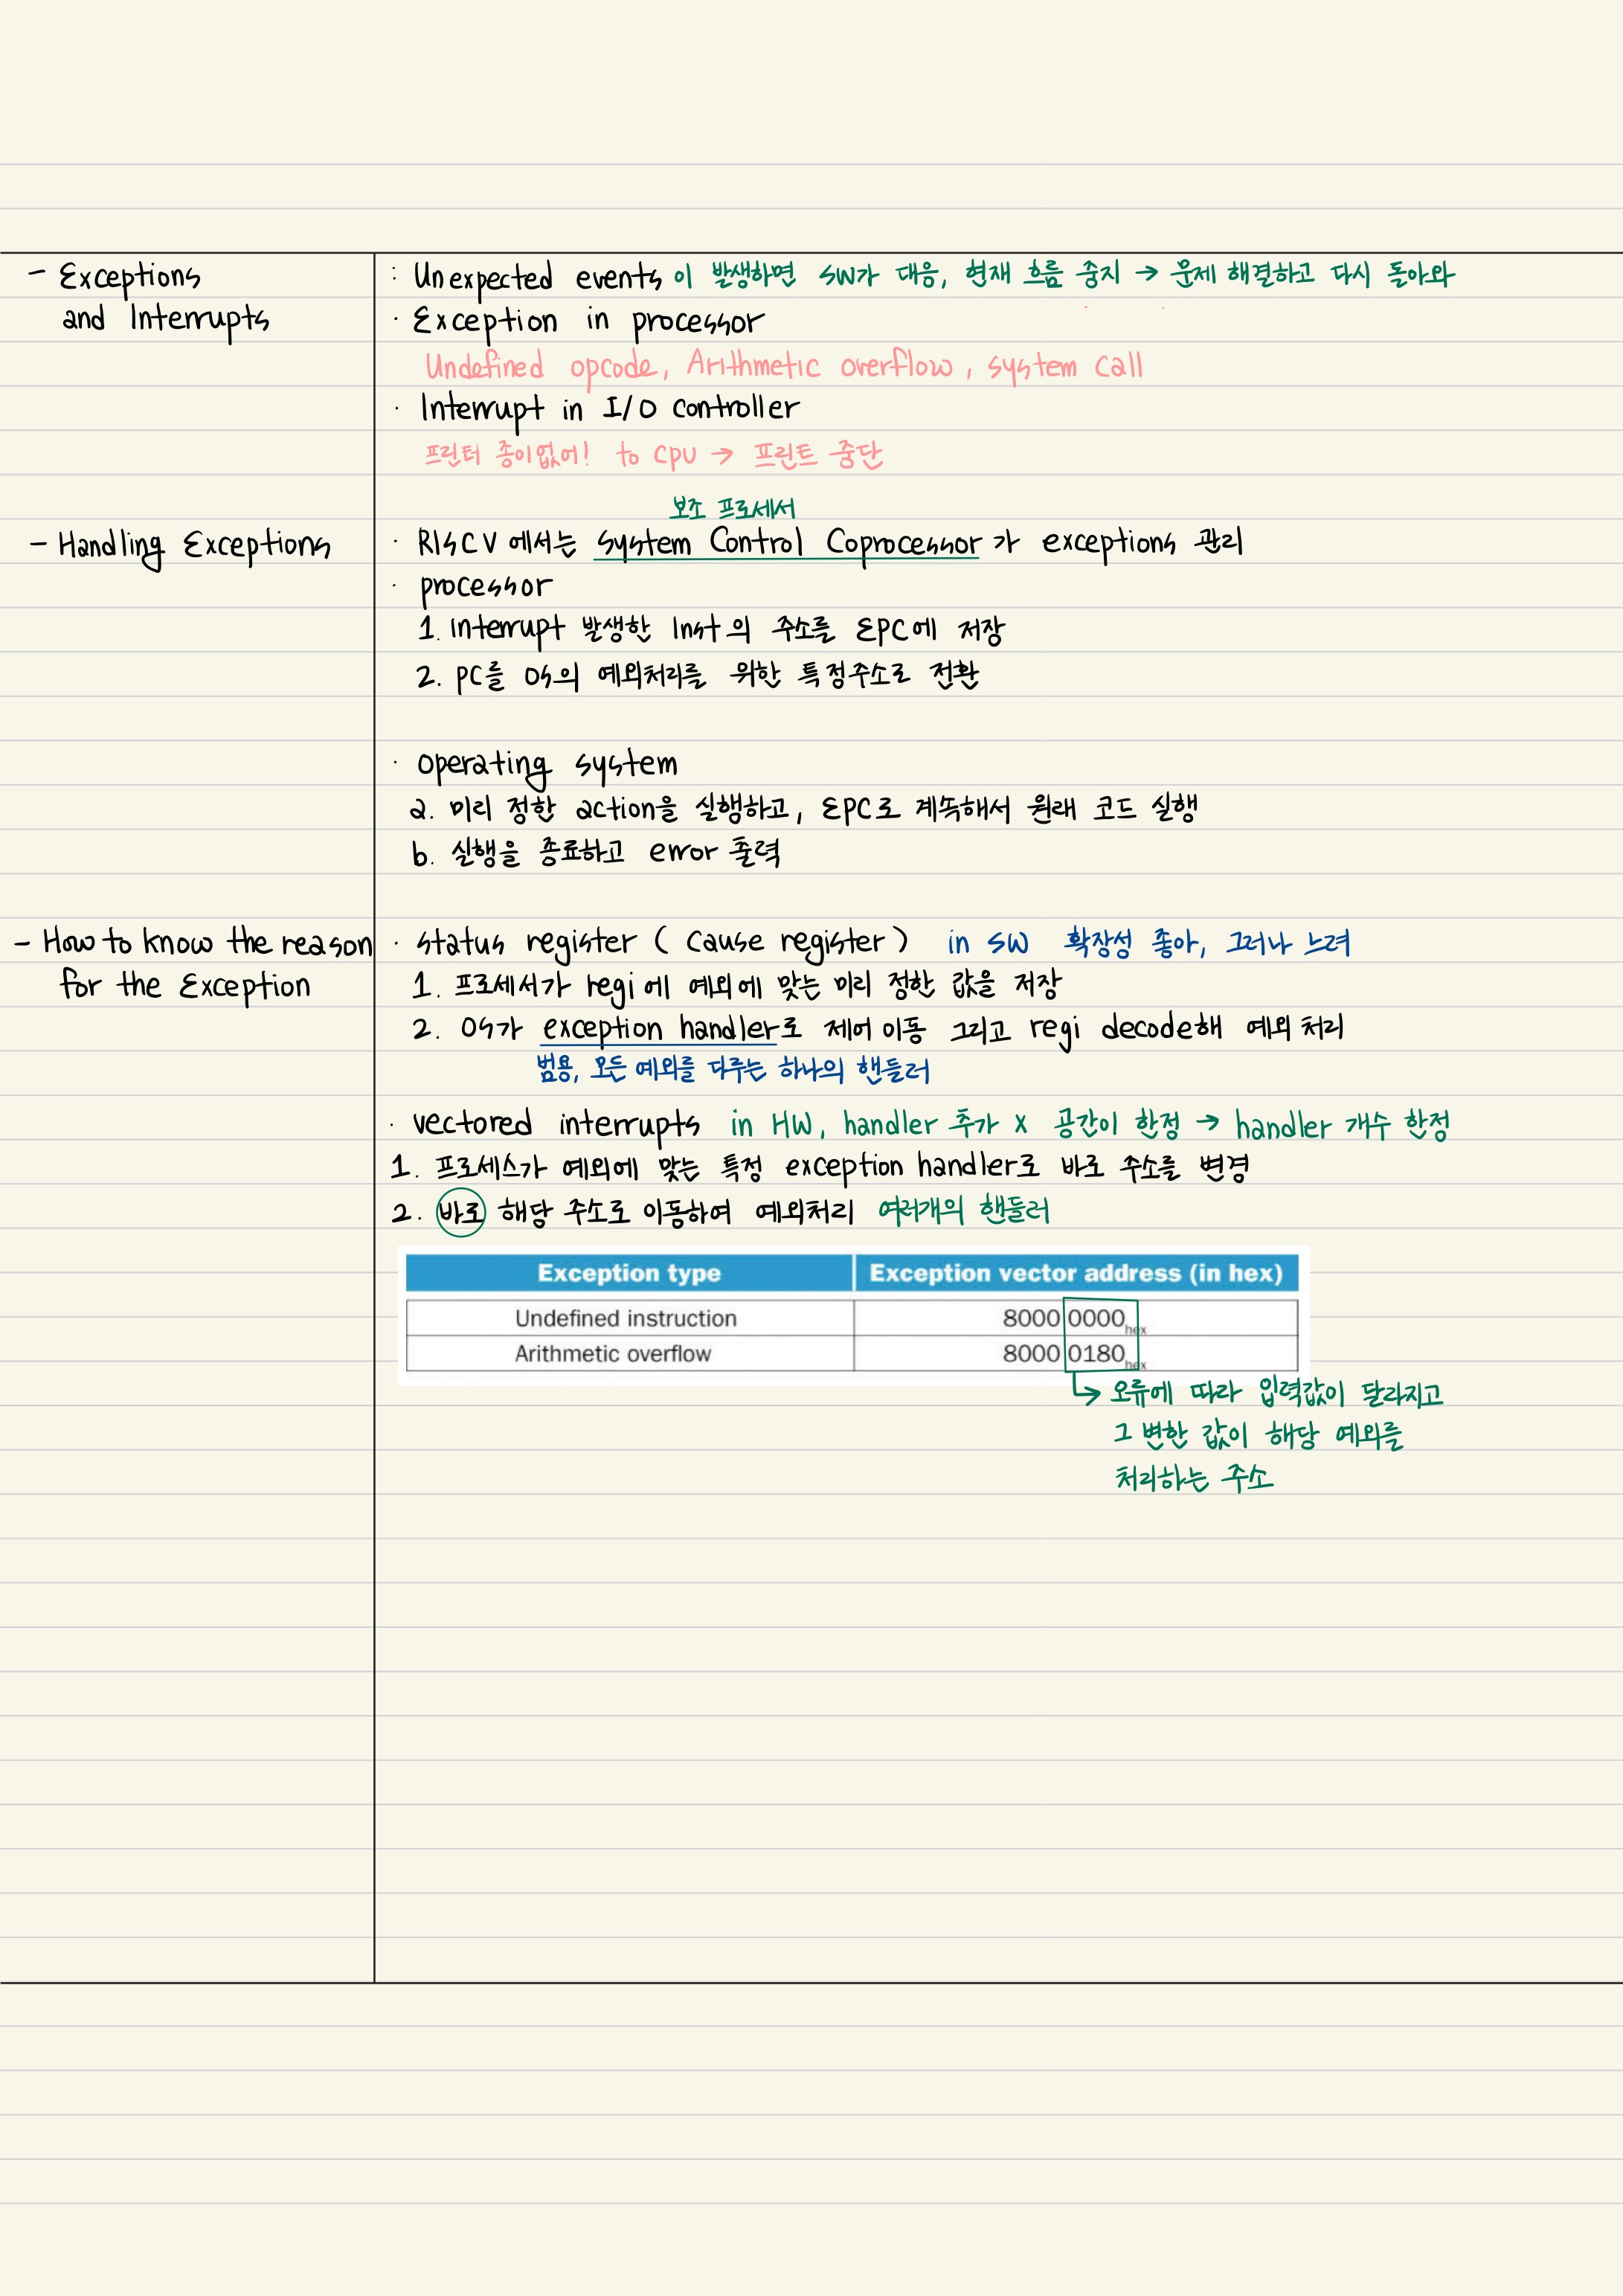 - Exceptions
and Interrupts
: Unexpected events 이 발생하면 SW가 대응, 현재 흐름 중지 → 문제 해결하고 다시 돌아와
· Exception in processor
Undefined opcode, Arithmetic overflow, system call
· Interrupt in I/O controller
프린터 종이없어! to CPU → 프린트 중단
보조 프로세서
- Handling Exceptions
· RISCV 에서는 system Control Coprocessor 가 exceptions 관리
· processor
1. Interrupt 발생한 Inst의 주소를 EPC에 저장
2. PC를 OS의 예외처리를 위한 특정주소로 전환
· operating system
a. 미리 정한 action을 실행하고, EPC로 계속해서 원래 코드 실행
b. 실행을 종료하고 error 출력
- How to know the reason
for the Exception
· status register ( cause register ) in SW 확장성 좋아, 그러나 느려
1. 프로세서가 regi에 예외에 맞는 미리 정한 값을 저장
2. OS가 exception handler로 제어 이동 그리고 regi decode해 예외 처리
범용, 모든 예외를 다루는 하나의 핸들러
· vectored interrupts in HW, handler 추가 X 공간이 한정 → handler 개수 한정
1. 프로세스가 예외에 맞는 특정 exception handler로 바로 주소를 변경
2. 바로 해당 주소로 이동하여 예외처리 여러개의 핸들러
Exception type Exception vector address (in hex)
Undefined instruction 8000 0000hex
Arithmetic overflow 8000 0180hex
↳ 오류에 따라 입력값이 달라지고
그 변한 값이 해당 예외를
처리하는 주소